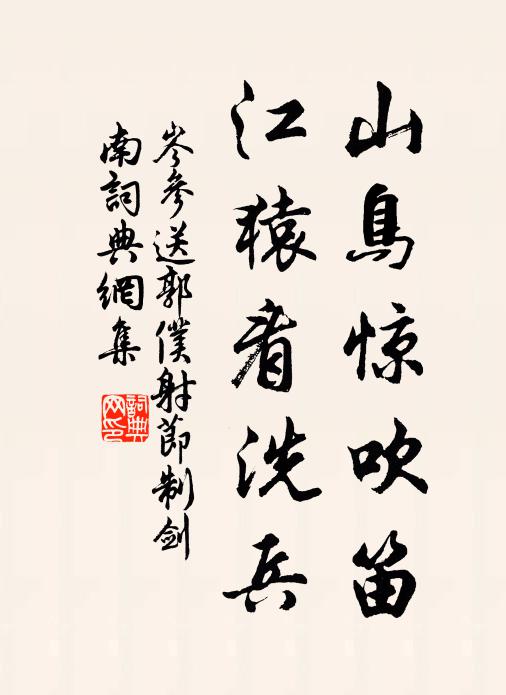 山鳥惊吹笛
江猿看洗兵
岑參送郭僕射節制剑
南詞典網集
詞典
网印